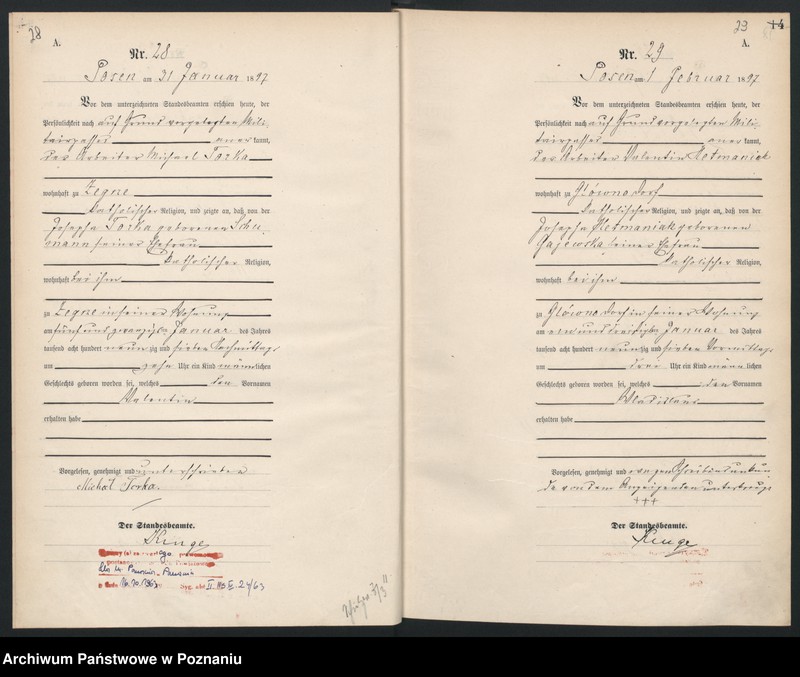 28
A.
Nr. 28
Posen am 31 Januar 1897
Vor dem unterzeichneten Standesbeamten erschien heute, der
Persönlichkeit nach auf Grund vorgelegten Mili-
tairpasses anerkannt,
der Arbeiter Michael Torka
wohnhaft zu Zegrze
katholischer Religion, und zeigte an, daß von der
Josepha Torka geborenen Schu-
mann seiner Ehefrau
katholischer Religion,
wohnhaft bei ihm
zu Zegrze in seiner Wohnung
am fünf und zwanzigsten Januar des Jahres
tausend acht hundert neunzig und sieben Nachmittags
um zehn Uhr ein Kind männlichen
Geschlechts geboren worden sei, welches den Vornamen
Valentin
erhalten habe
Vorgelesen, genehmigt und unterschrieben
Michał Torka.
Der Standesbeamte.
Kinge
29
14
A.
Nr. 29
Posen am 1 Februar 1897
Vor dem unterzeichneten Standesbeamten erschien heute, der
Persönlichkeit nach auf Grund vorgelegten Mili-
tairpasses anerkannt,
der Arbeiter Valentin Retmaniak
wohnhaft zu Glówno Dorf
katholischer Religion, und zeigte an, daß von der
Josepha Retmaniak geborenen
Gajewska seiner Ehefrau
katholischer Religion,
wohnhaft bei ihm
zu Glówno Dorf in seiner Wohnung
am ein und dreißigsten Januar des Jahres
tausend acht hundert neunzig und sieben Vormittags
um drei Uhr ein Kind männlichen
Geschlechts geboren worden sei, welches den Vornamen
Wladislaus
erhalten habe
Vorgelesen, genehmigt und wegen Schreibensunkun
de von dem Anzeigenden unterkreuzt
+++
Der Standesbeamte.
Kinge
Archiwum Państwowe w Poznaniu